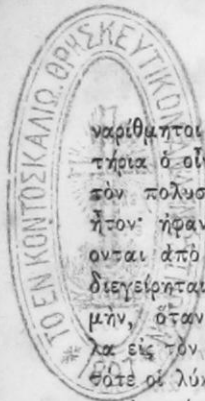 ΤΟ ΕΝ ΚΟΝΤΟΣΚΑΛΙΩ ΘΡΗΣΚΕΥΤΙΚΟΝ
ναρίθμητοι
τήρια ὁ οἶν
τὸν πολυσ
ἦτον· ἠφαν
ονται ἀπὸ
διεγείρηται
μὴν, ὅταν
λα εἰς τὸν
τότε οἱ λύκ